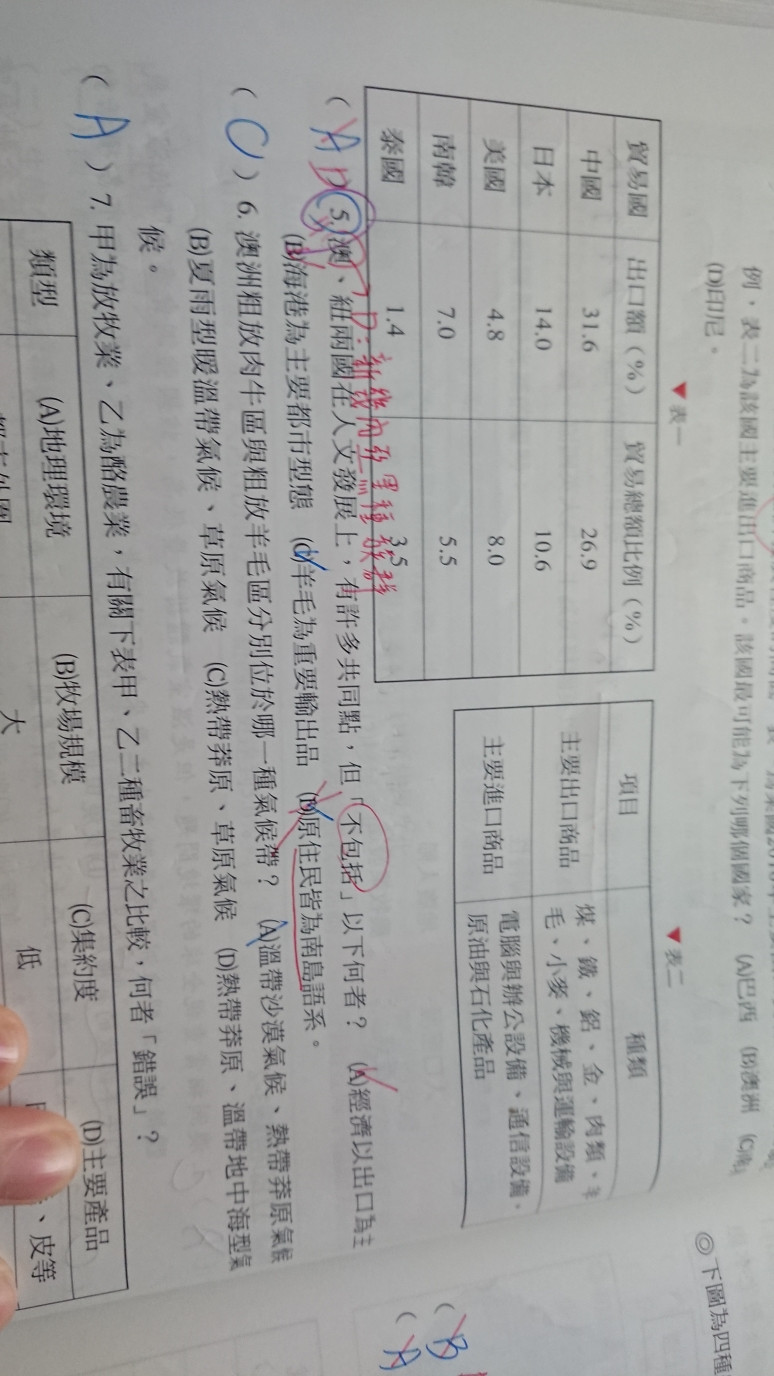 例，表二為該國主要進出口商品。該國最可能為下列哪個國家？ (A)巴西 (B)澳洲
(D)印尼。
▼表一
貿易國 出口額（%） 貿易總額比例（%）
中國 31.6 26.9
日本 14.0 10.6
美國 4.8 8.0
南韓 7.0 5.5
泰國 1.4 3.5
▼表二
項目 種類
主要出口商品 煤、鐵、鋁、金、肉類、
毛、小麥、機械與運輸設備
主要進口商品 電腦與辦公設備、通信設備、
原油與石化產品
D：新
（ A D 5. 澳、紐兩國在人文發展上，有許多共同點，但「不包括」以下何者？ (A)經濟以出口為主
(B)海港為主要都市型態 (C)羊毛為重要輸出品 (D)原住民皆為南島語系。
（ C ）6. 澳洲粗放肉牛區與粗放羊毛區分別位於哪一種氣候帶？ (A)溫帶沙漠氣候、熱帶莽原氣候
(B)夏雨型暖溫帶氣候、草原氣候 (C)熱帶莽原、草原氣候 (D)熱帶莽原、溫帶地中海型氣
候。
（ A ）7. 甲為放牧業、乙為酪農業，有關下表甲、乙二種畜牧業之比較，何者「錯誤」？
類型 (A)地理環境 (B)牧場規模 (C)集約度 (D)主要產品
大 低 、皮等
◎下圖為四種
（ B
（ A